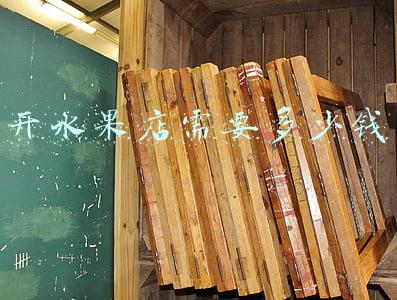 开水果店需要多少钱